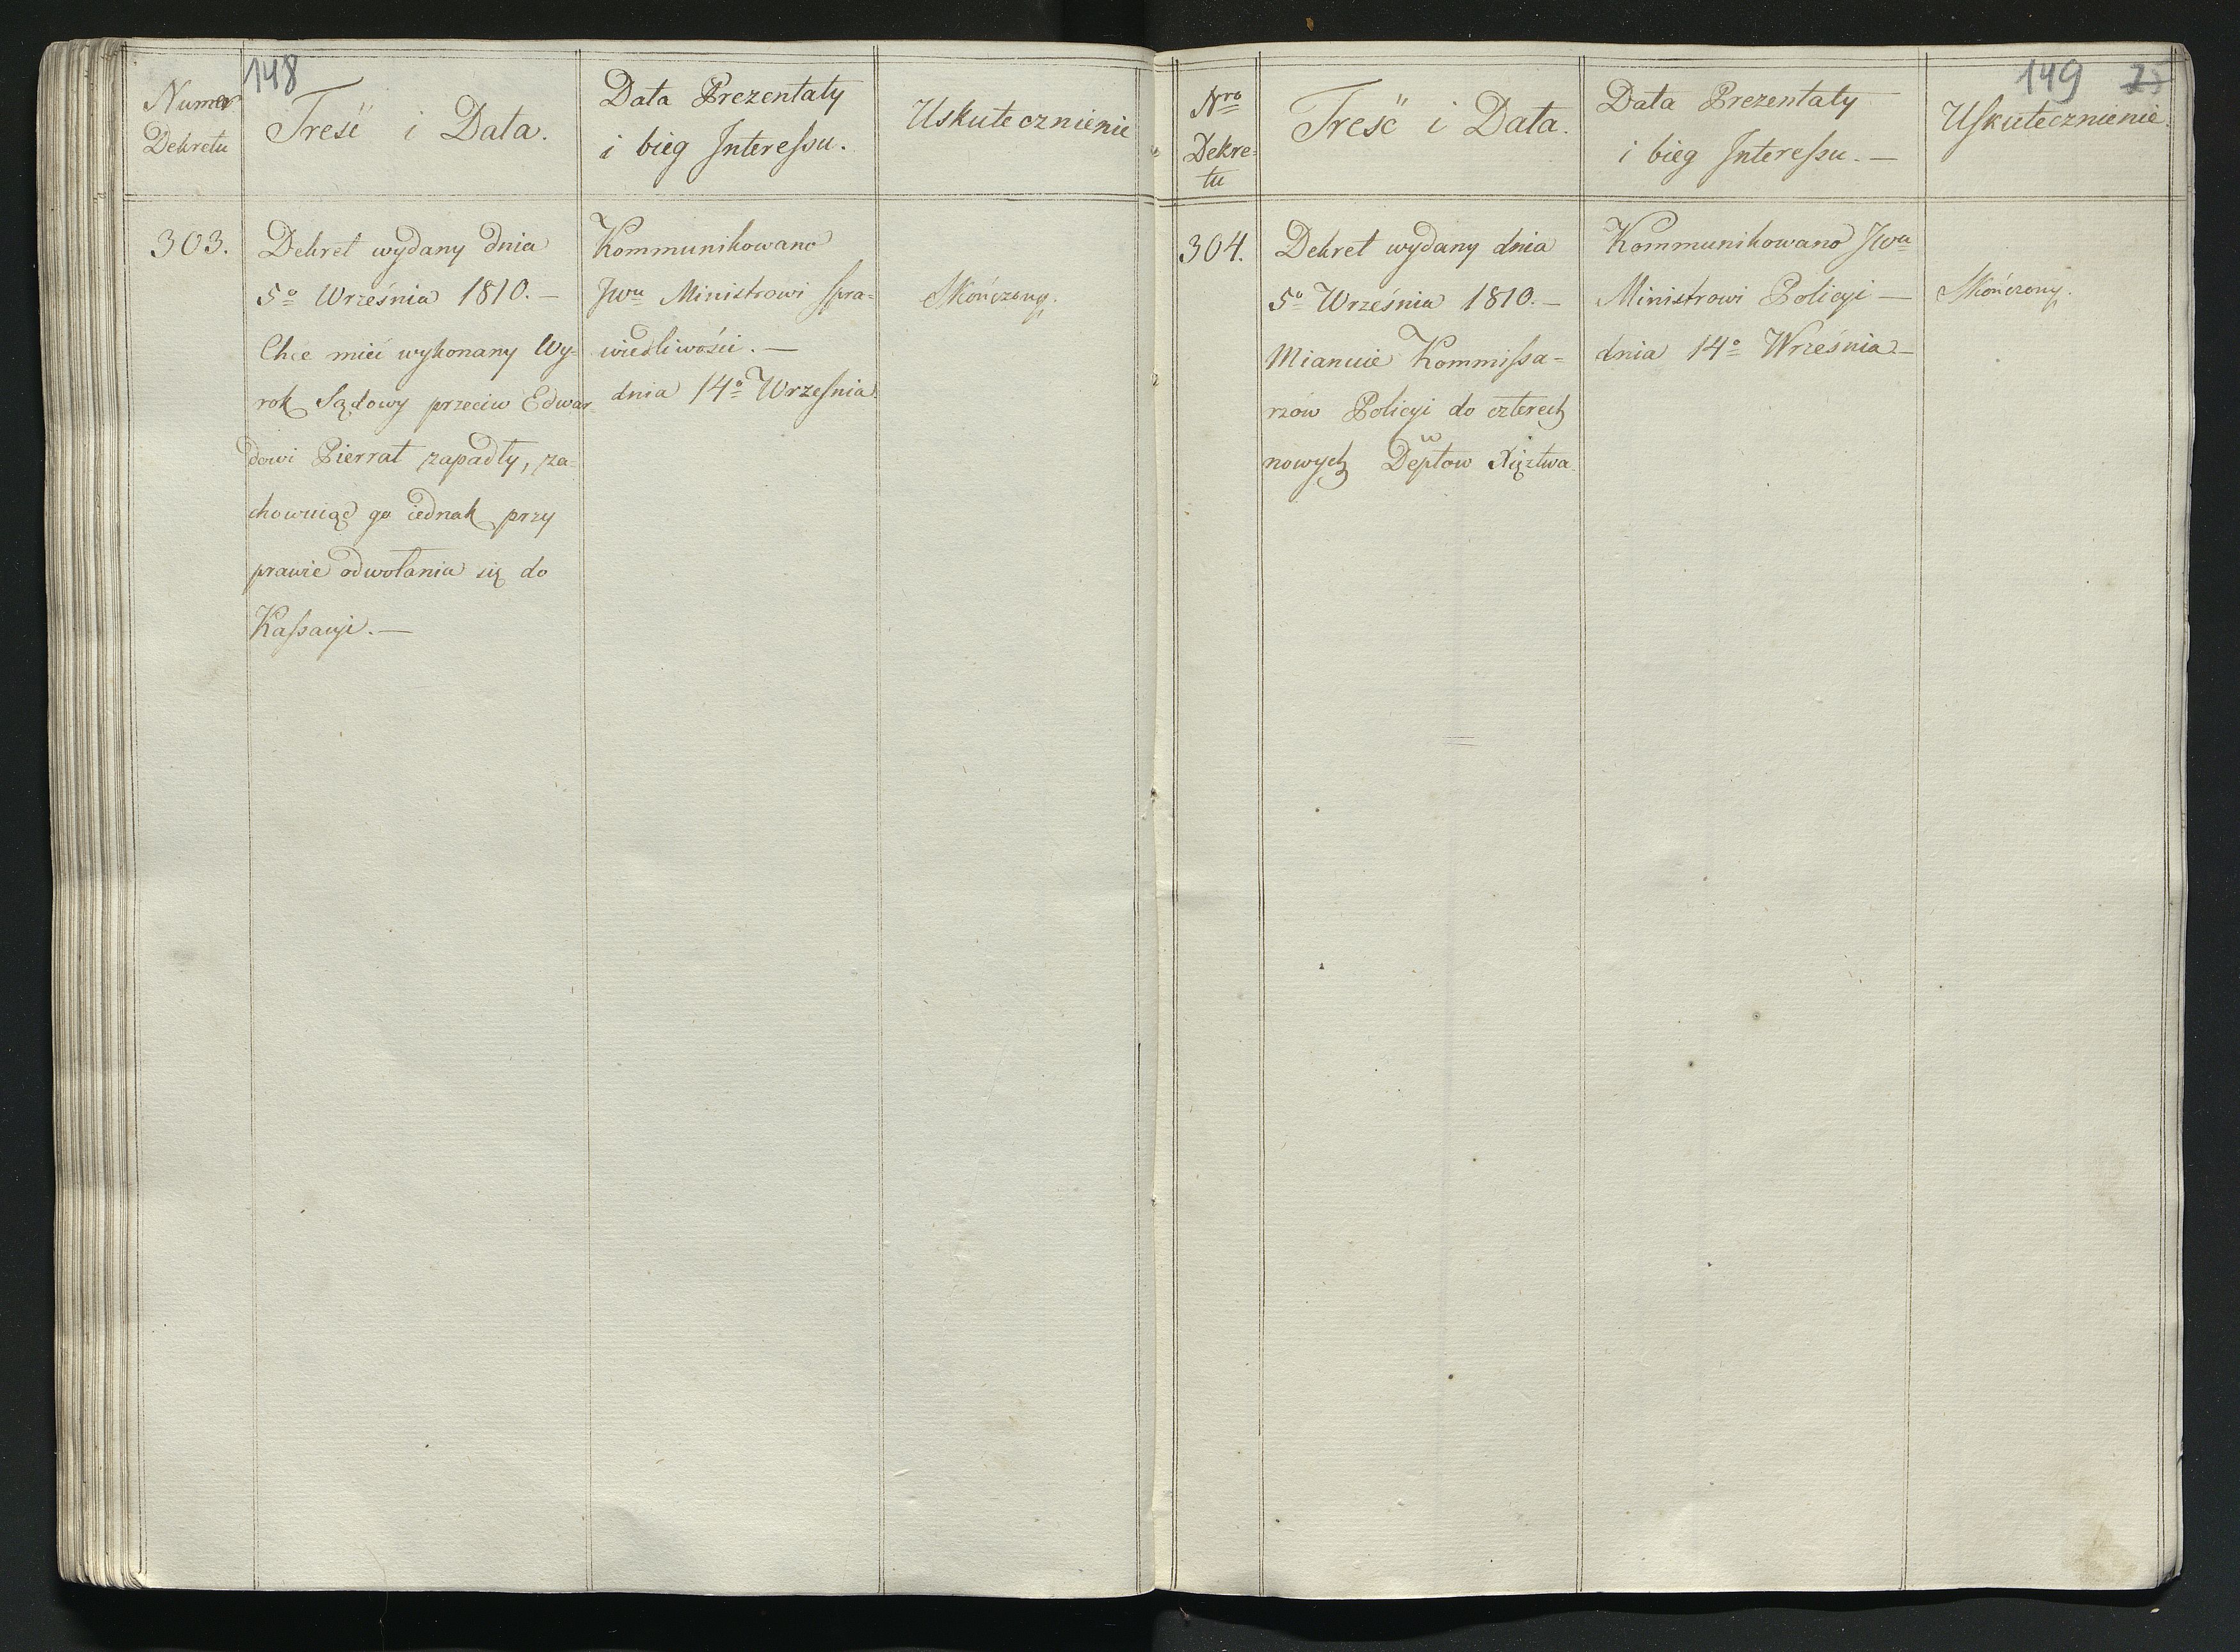 148
Numer
Dekretu
Treść i Data.
Data Prezentaty
i bieg Interessu.
Uskutecznienie
303.
Dekret wydany dnia
5º Września 1810. —
Chce mieć wykonany Wy-
rok Sądowy przeciw Edwar-
dowi Pierrat zapadły, za-
chowuiąc go iednak przy
prawie odwołania się do
Kassacyi. —
Kommunikowano
JWu Ministrowi Spra-
wiedliwości. —
dnia 14º Września
Skończony.
149
Nro
Dekre-
tu
Treść i Data.
Data Prezentaty
i bieg Interessu. —
Uskutecznienie.
304.
Dekret wydany dnia
5º Września 1810. —
Mianuie Kommissa-
rzów Policyi do czterech
nowych Deptow Xięztwa
Kommunikowano JWu
Ministrowi Policyi —
dnia 14º Września —
Skończony.